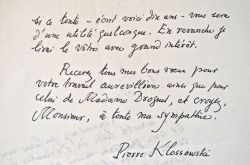 si ce texte - écrit voici dix ans - vous sera
d'une utilité quelconque. En revanche je
lirai le vôtre avec grand intérêt.
Recevez tous mes bons vœux pour
votre travail aurevillien ainsi que pour
celui de Madame Droguet, et croyez,
Monsieur, à toute ma sympathie.
Pierre Klossowski